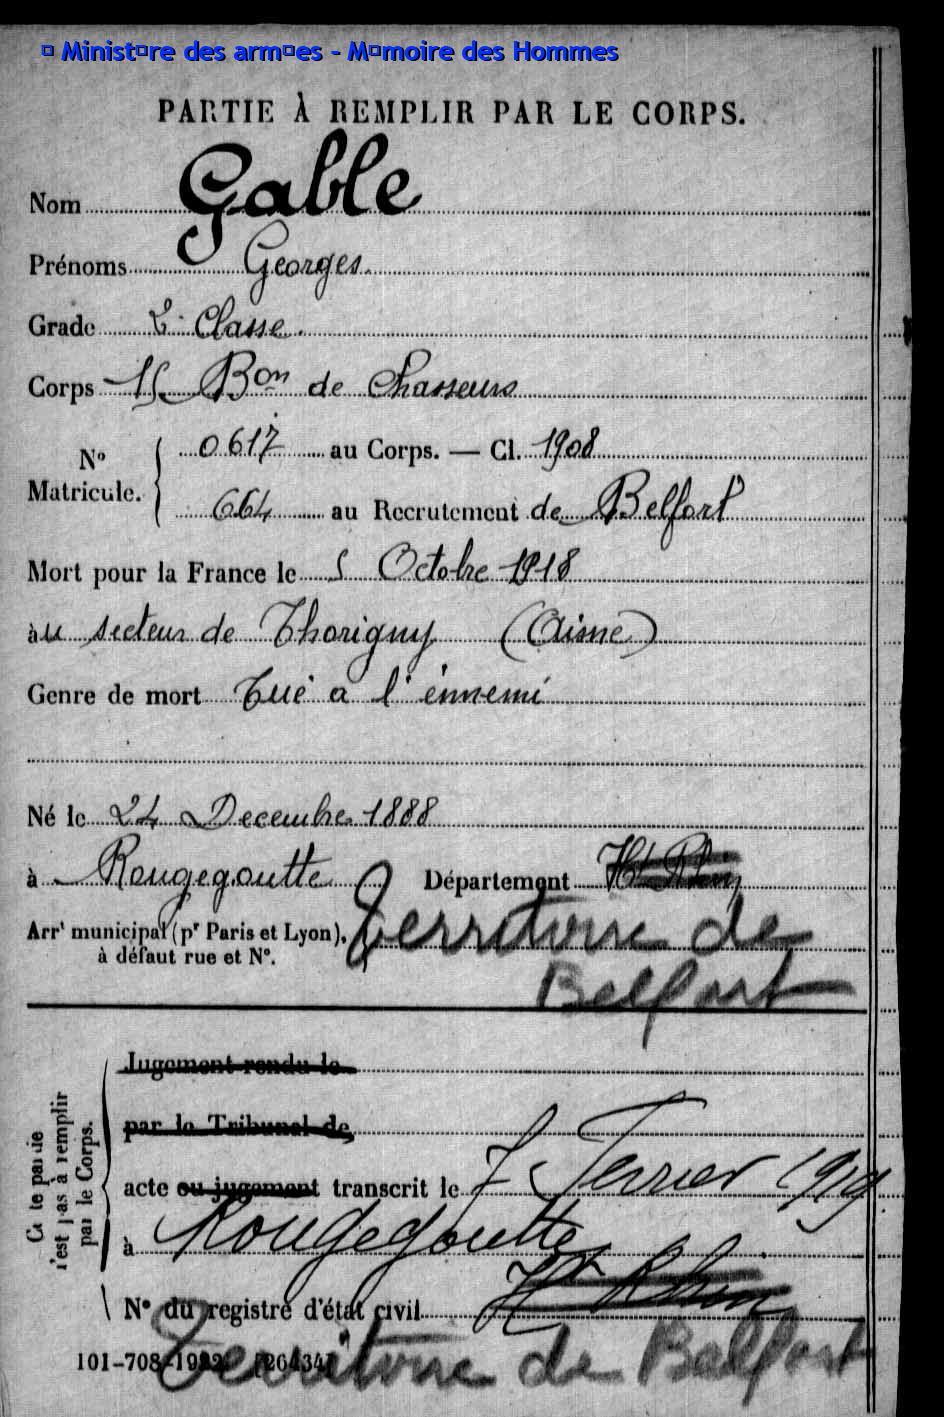 © Ministère des armées - Mémoire des Hommes
PARTIE À REMPLIR PAR LE CORPS.
Nom Gable
Prénoms Georges.
Grade 2e Classe.
Corps 15 Bon de Chasseurs
No Matricule. { 0617 au Corps. — Cl. 1908
664 au Recrutement de Belfort
Mort pour la France le 5 Octobre 1918
àu secteur de Thorigny (Aisne)
Genre de mort Tué a l'énnemi
Né le 24 Decembre 1888
à Rougegoutte Département Ht Rhin
Arrt municipal (pr Paris et Lyon), Territoire de
à défaut rue et No. Belfort
Jugement rendu le
par le Tribunal de
acte ou jugement transcrit le 7 Fevrier 1919.
à Rougegoutte
No du registre d'état civil Ht Rhin
Territoire de Belfort
101-708-1922. [26434]
Cette partie
n'est pas à remplir
par le Corps.